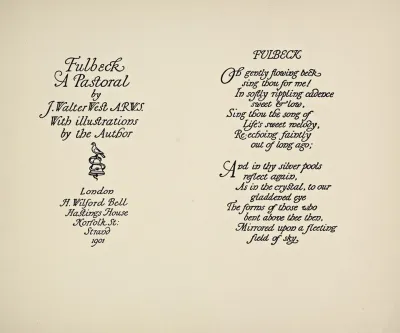 Fulbeck
A Pastoral
by
J. Walter West A.R.W.S.
With illustrations
by the Author
London
H. Wilford Bell
Hastings House
Norfolk St:
Strand
1901
FULBECK
Oh gently flowing beck
sing thou for me!
In softly rippling cadence
sweet & low,
Sing thou the song of
Life's sweet melody,
Re-echoing faintly
out of long ago;
And in thy silver pools
reflect again,
As in the crystal, to our
gladdened eye
The forms of those who
bent above thee then,
Mirrored upon a fleeting
field of sky,